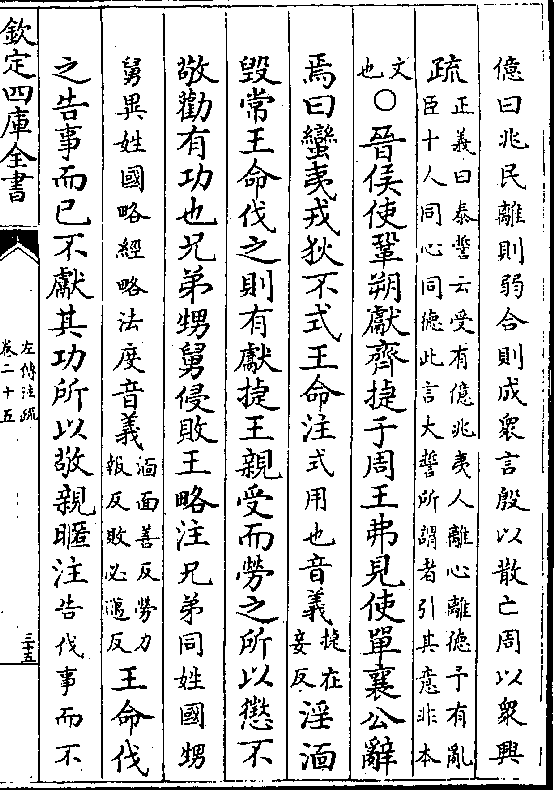 億曰兆民離則弱合則成衆言殷以散亡周以衆興
疏正義曰泰誓云受有億兆夷人離心離德予有亂
臣十人同心同德此言大誓所謂者引其意非本
文也○晉侯使鞏朔獻齊捷于周王弗見使單襄公辭
焉曰蠻夷戎狄不式王命注式用也音義捷在妾反淫湎
毀常王命伐之則有獻捷王親受而勞之所以懲不
敬勸有功也兄弟甥舅侵敗王略注兄弟同姓國甥
舅異姓國略經略法度音義湎面善反勞力報反敗必邁反王命伐
之告事而已不獻其功所以敬親暱注告伐事而不
欽定四庫全書
左傳注疏
卷二十五
三十五